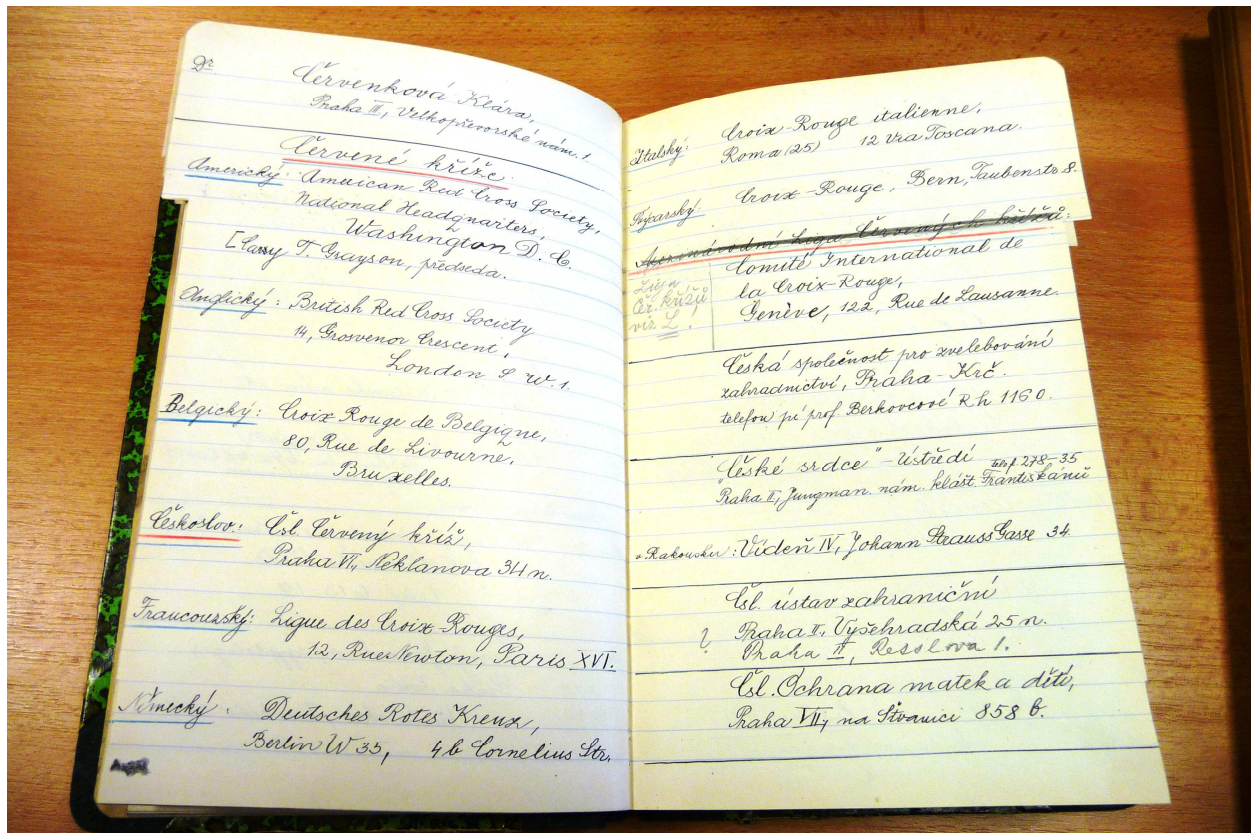 Dr. Červenková Klára,
Praha III, Velkopřevorské nám. 1
Červené kříže.
Americký: American Red Cross Society,
National Headquarters,
Washington D. C.
[Cary T. Grayson, předseda.
Anglický: British Red Cross Society
14, Grosvenor Crescent,
London S. W. 1.
Belgický: Croix Rouge de Belgique,
80, Rue de Livourne,
Bruxelles.
Českoslov.: Čsl. Červený kříž,
Praha VI, Neklanova 34 n.
Francouzský: Ligue des Croix-Rouges,
12, Rue Newton, Paris XVI.
Německý: Deutsches Rotes Kreuz,
Berlin W 35, 4b Cornelius Str.
Italský: Croix-Rouge italienne,
Roma (25) 12 Via Toscana.
Švýcarský: Croix-Rouge, Bern, Taubenstr. 8.
Mezinárodní Liga Červených křížů:
Comité International de
la Croix-Rouge,
Genève, 122, Rue de Lausanne.
Liga
Čer. křížů
viz L.
Česká společnost pro zvelebování
zahradnictví, Praha-Krč.
telefon pí prof Berkovcové R h 1160.
"České srdce" - Ústředí telef. 278-35
Praha II, Jungman. nám. klášt. Františkánů
v Rakousku: Vídeň IV, Johann Strauss Gasse 34.
Čsl. ústav zahraniční
Praha II, Vyšehradská 25 n.
? Praha II, Resslova 1.
Čsl. Ochrana matek a dětí,
Praha VII, na Štvanici 858 b.